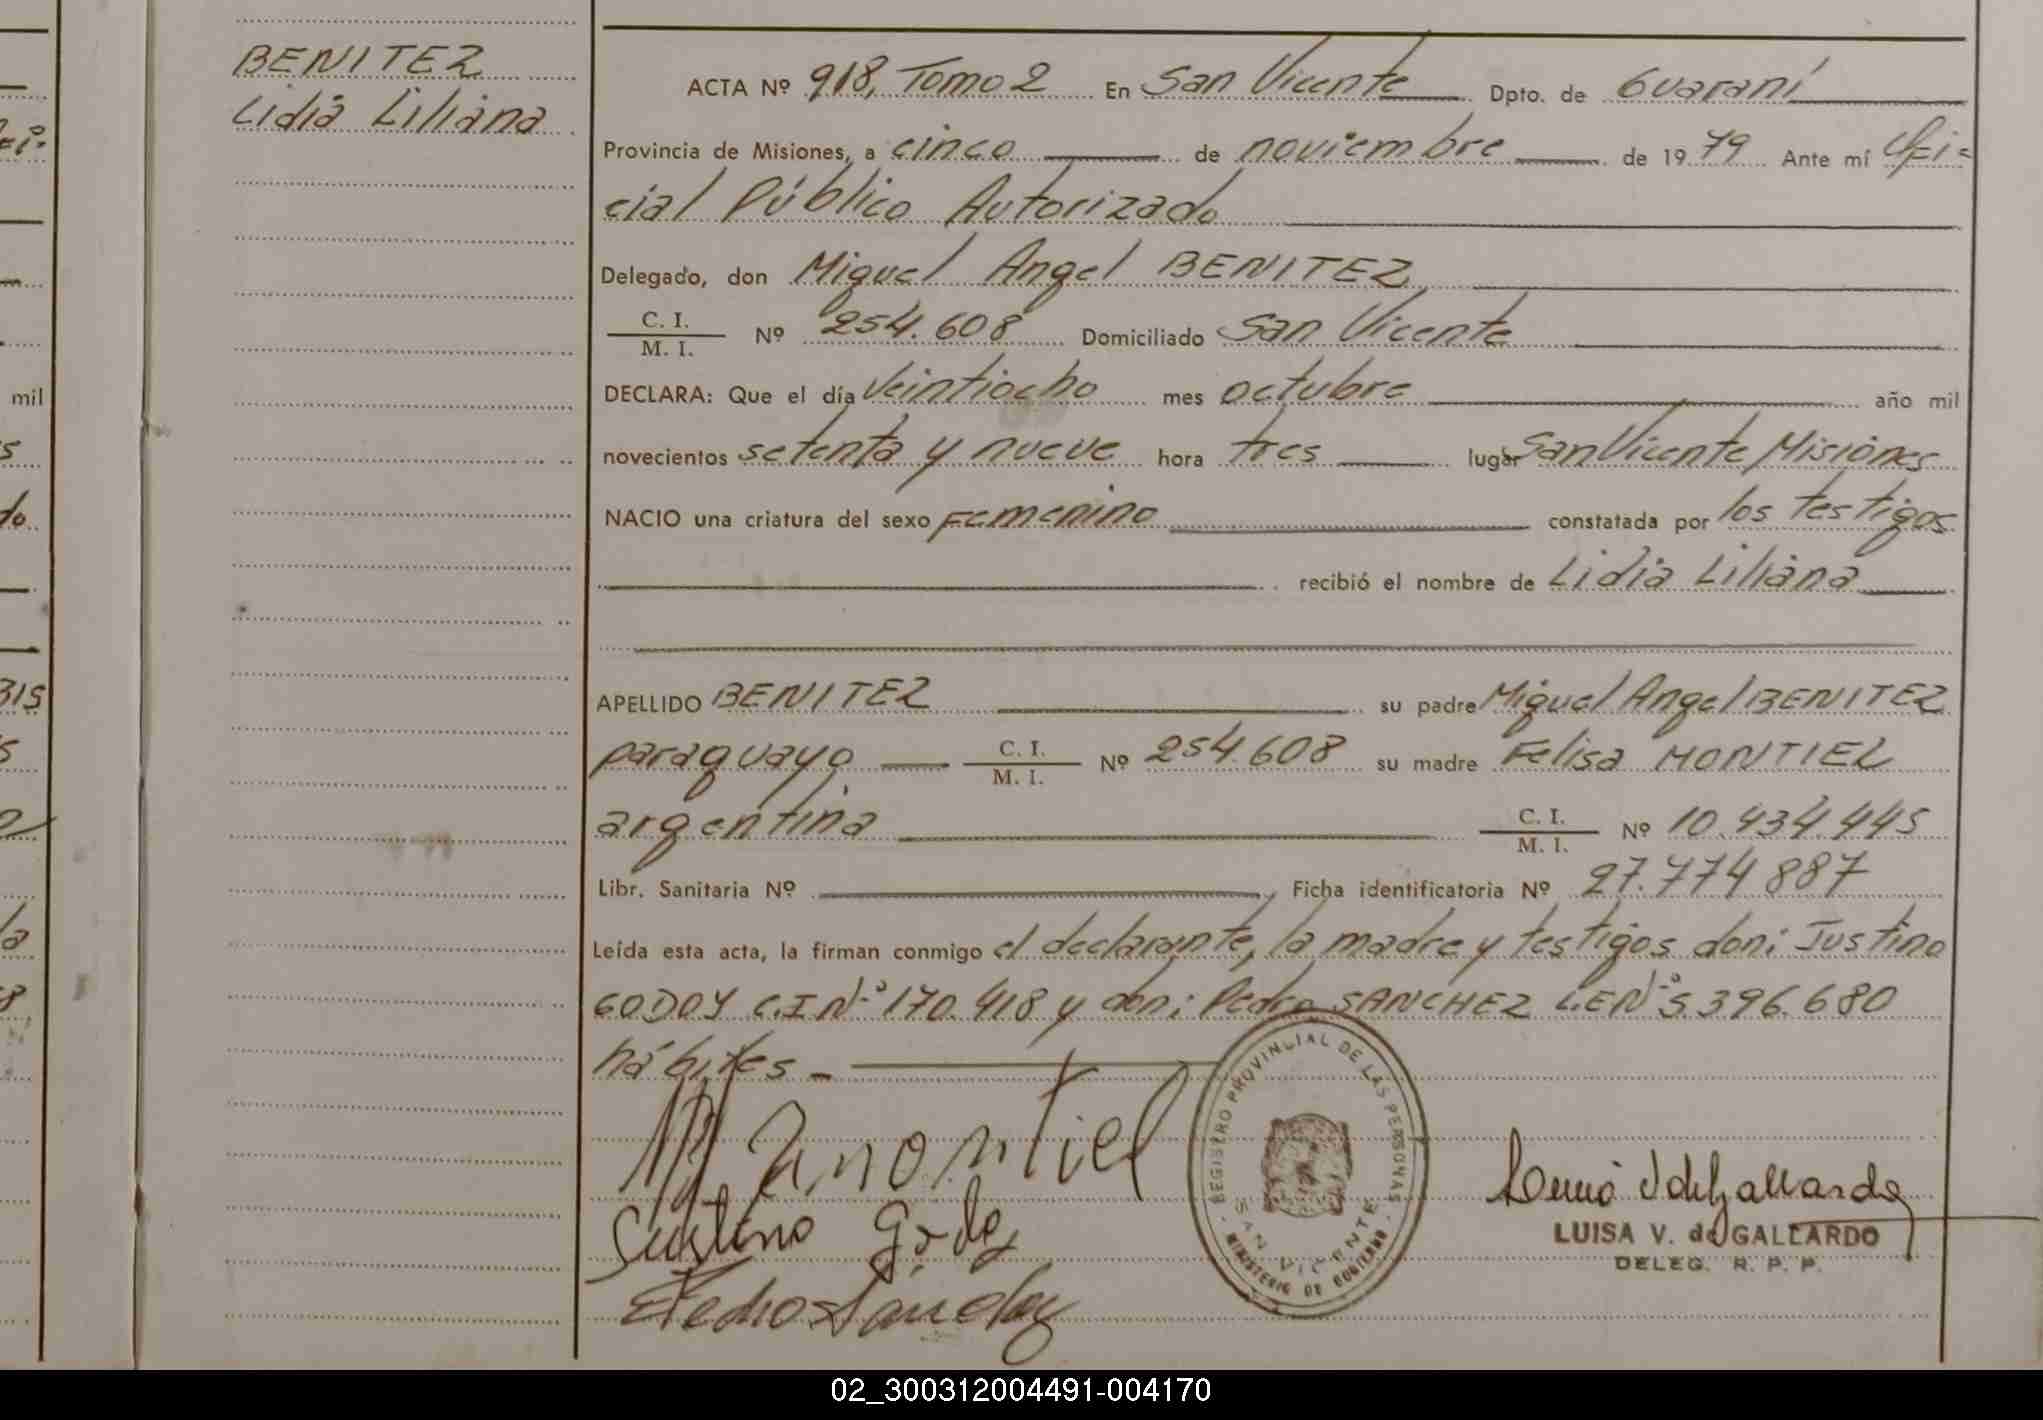 BENITEZ
Lidia Liliana
ACTA Nº 918, Tomo 2 En San Vicente Dpto. de Guaraní
Provincia de Misiones, a cinco de noviembre de 1979 Ante mí Ofi-
cial Público Autorizado
Delegado, don Miguel Angel BENITEZ
C. I.
M. I. Nº 254.608 Domiciliado San Vicente
DECLARA: Que el día veintiocho mes octubre año mil
novecientos setenta y nueve hora tres lugar San Vicente Misiones
NACIO una criatura del sexo Femenino constatada por los testigos
recibió el nombre de Lidia Liliana
APELLIDO BENITEZ su padre Miguel Angel BENITEZ
paraguayo C. I.
M. I. Nº 254.608 su madre Felisa MONTIEL
argentina C. I.
M. I. Nº 10.434.445
Libr. Sanitaria Nº Ficha identificatoria Nº 27.774.887
Leída esta acta, la firman conmigo el declarante, la madre y testigos don: Justino
GODOY C.I Nº 170.418 y don: Pedro SANCHEZ L.E Nº 5.396.680
hábiles -
Montiel
Justino Godoy
Pedro Sanchez
REGISTRO PROVINCIAL DE LAS PERSONAS
SAN VICENTE
MINISTERIO DE GOBIERNO
LUISA V. de GALLARDO
DELEG. R. P. P.
mil
BIS
02_300312004491-004170